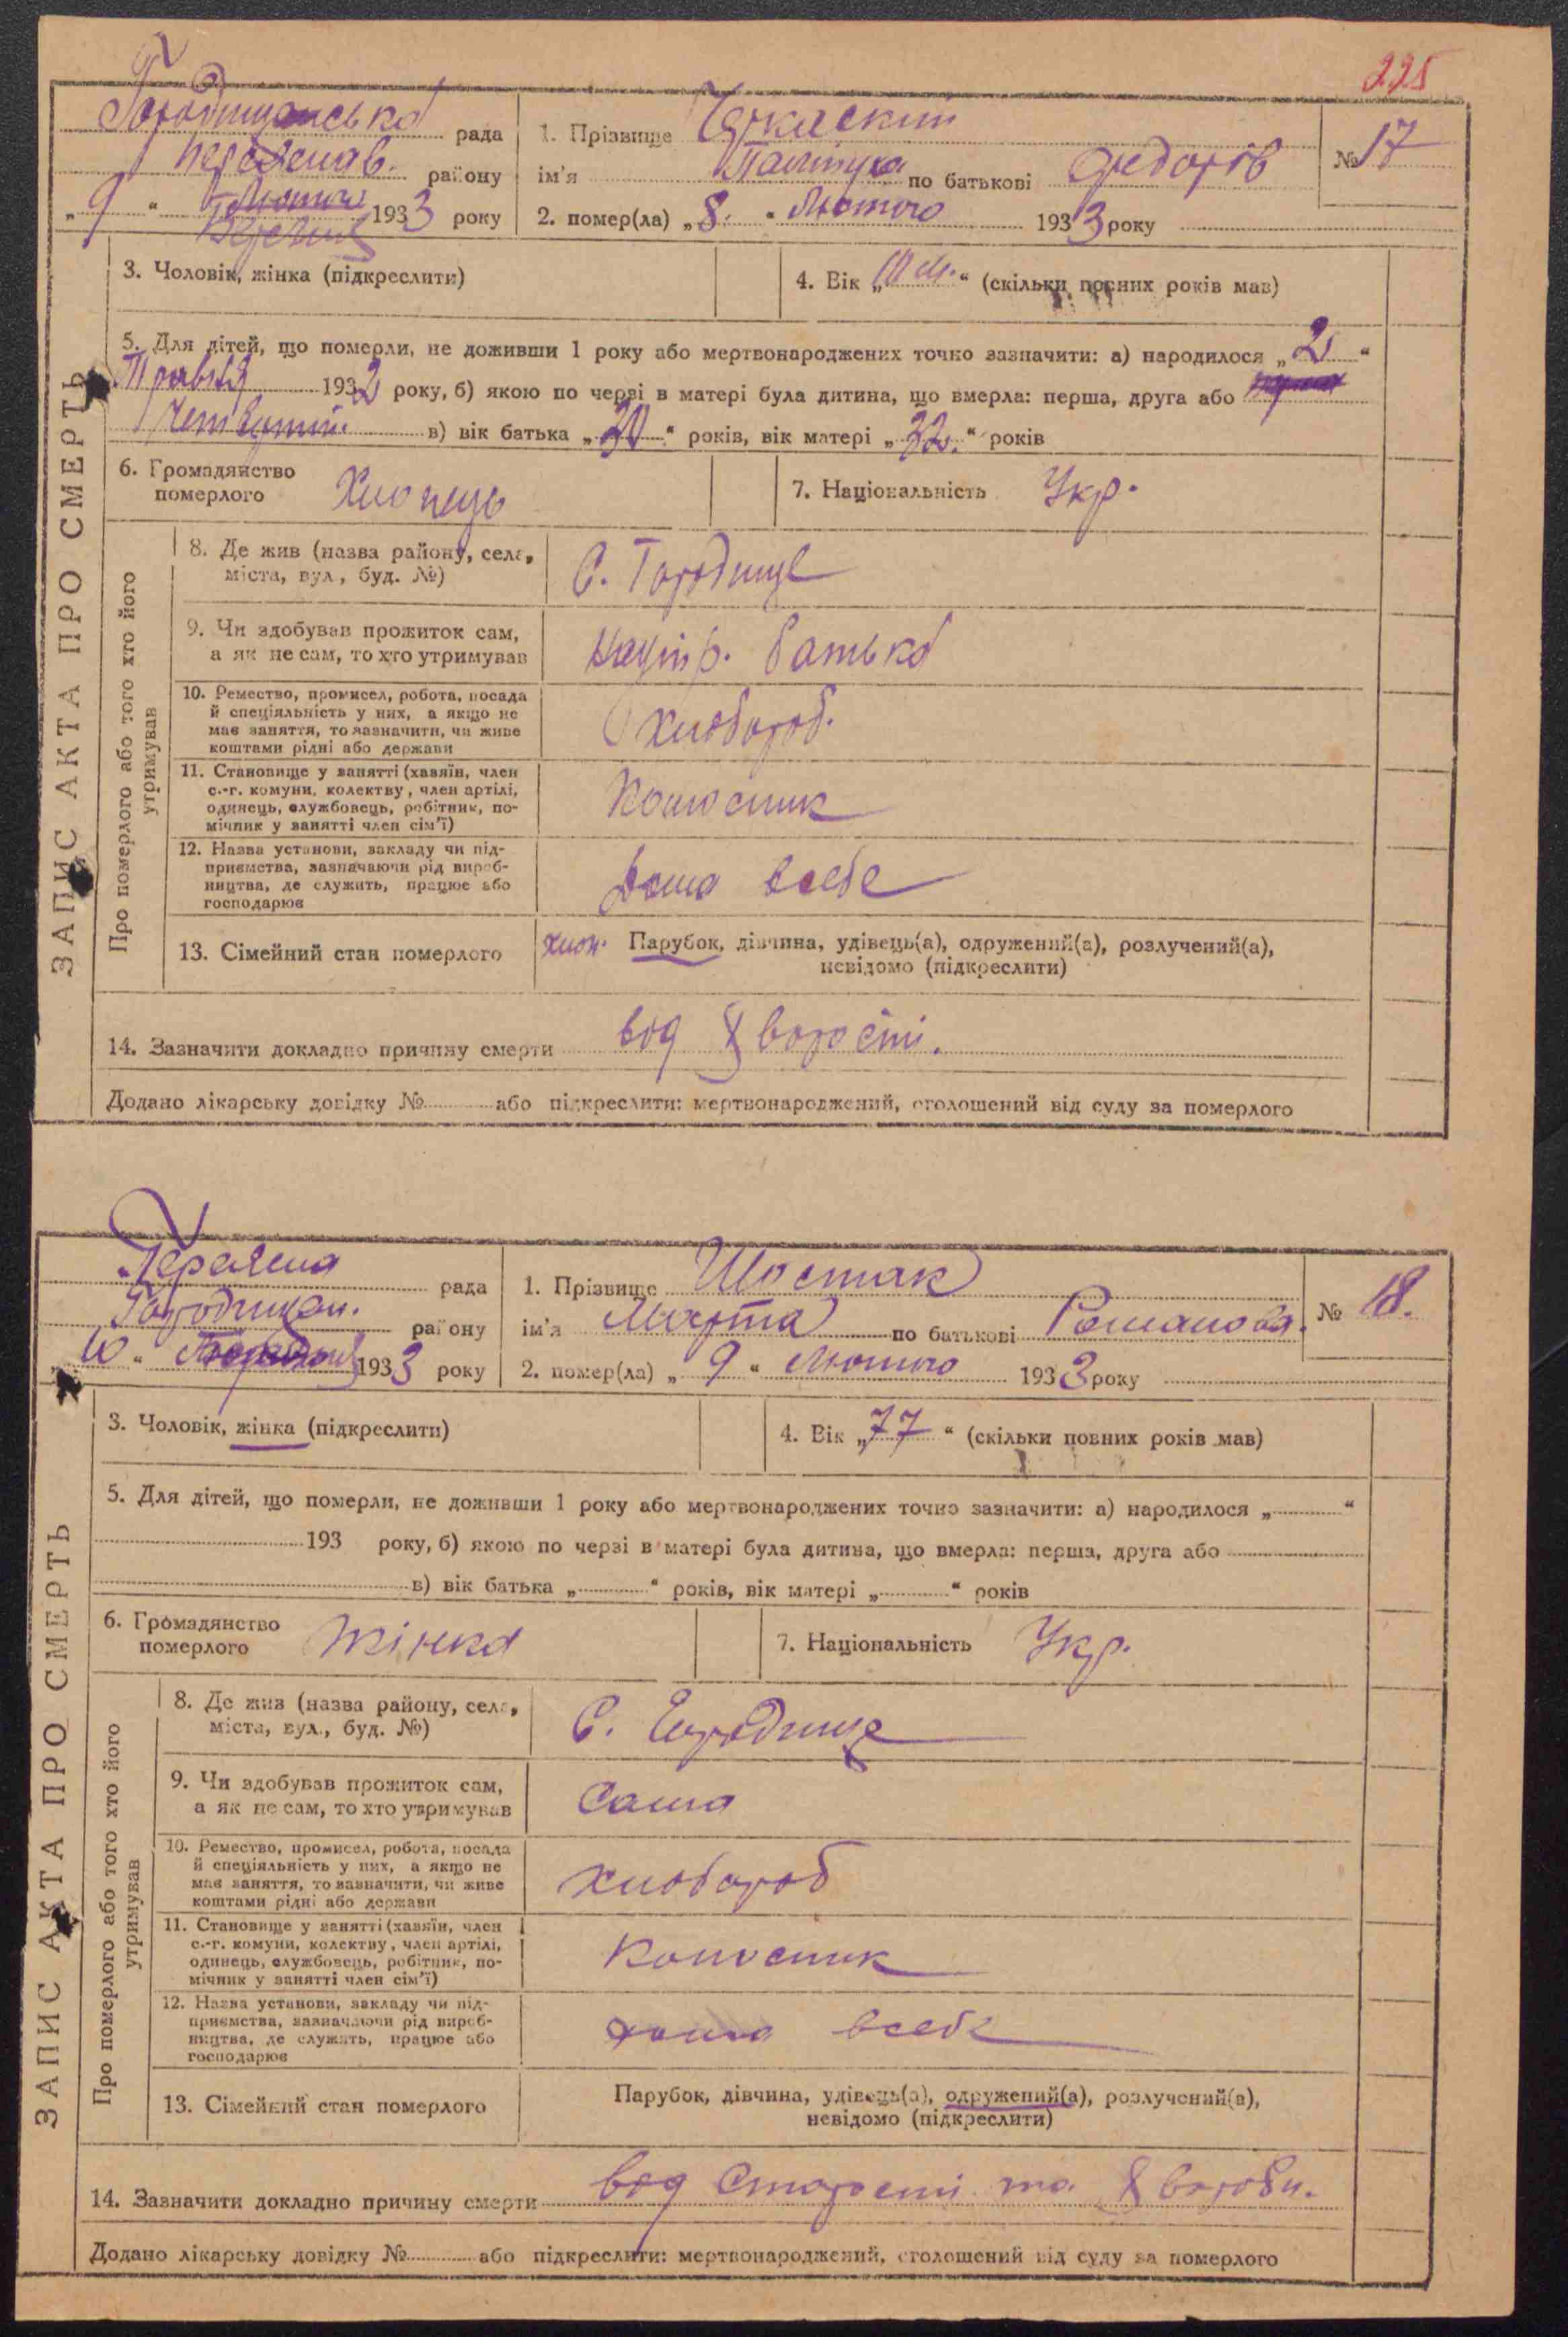 225
Городищанська рада
Переяслав. району
„9“ Лютого 1933 року
Березня
1. Прізвище Черкаский
ім'я по батькові Федорів
№ 17
2. помер(ла) „8.“ Лютого 1933 року
ЗАПИС АКТА ПРО СМЕРТЬ
3. Чоловік, жінка (підкреслити)
4. Вік „10 м.“ (скільки повних років мав)
5. Для дітей, що померли, не доживши 1 року або мертвонароджених точно зазначити: а) народилося „2“
Травня 1932 року, б) якою по черзі в матері була дитина, що вмерла: перша, друга або
Четвертий в) вік батька „30“ років, вік матері „32.“ років
6. Громадянство
померлого Хлопець
7. Національність Укр.
Про померлого або того хто його
утримував
8. Де жив (назва району, села,
міста, вул., буд. №)
С. Городище
9. Чи здобував прожиток сам,
а як не сам, то хто утримував
батько
10. Ремество, промисел, робота, посада
й спеціяльність у них, а якщо не
має заняття, то зазначити, чи живе
коштами рідні або держави
Хлібороб.
11. Становище у занятті (хазяїн, член
с.-г. комуни, колектву, член артілі,
одинець, службовець, робітник, по-
мічник у занятті член сім'ї)
Колгосник
12. Назва установи, закладу чи під-
приємства, зазначаючи рід вироб-
ництва, де служить, працює або
господарює
Дома всебе
13. Сімейний стан померлого
хлоп. Парубок, дівчина, удівець(а), одружений(а), розлучений(а),
невідомо (підкреслити)
14. Зазначити докладно причину смерти від Хворости.
Додано лікарську довідку № або підкреслити: мертвонароджений, оголошений від суду за померлого
Переяслав рада
Городищан. району
„10“ 1933 року
1. Прізвище Шостак
ім'я Марта по батькові Романова.
№ 18.
2. помер(ла) „9“ Лютого 1933 року
ЗАПИС АКТА ПРО СМЕРТЬ
3. Чоловік, жінка (підкреслити)
4. Вік „77“ (скільки повних років мав)
5. Для дітей, що померли, не доживши 1 року або мертвонароджених точно зазначити: а) народилося „ “
193 року, б) якою по черзі в матері була дитина, що вмерла: перша, друга або
в) вік батька „ “ років, вік матері „ “ років
6. Громадянство
померлого Жінка
7. Національність Укр.
Про померлого або того хто його
утримував
8. Де жив (назва району, села,
міста, вул., буд. №)
С. Городище
9. Чи здобував прожиток сам,
а як не сам, то хто утримував
Сама
10. Ремество, промисел, робота, посада
й спеціяльність у них, а якщо не
має заняття, то зазначити, чи живе
коштами рідні або держави
Хлібороб
11. Становище у занятті (хазяїн, член
с.-г. комуни, колектву, член артілі,
одинець, службовець, робітник, по-
мічник у занятті член сім'ї)
Колгосник
12. Назва установи, закладу чи під-
приємства, зазначаючи рід вироб-
ництва, де служить, працює або
господарює
дома всебе
13. Сімейний стан померлого
Парубок, дівчина, удівець(а), одружений(а), розлучений(а),
невідомо (підкреслити)
14. Зазначити докладно причину смерти від Старости та Хвороби.
Додано лікарську довідку № або підкреслити: мертвонароджений, оголошений від суду за померлого